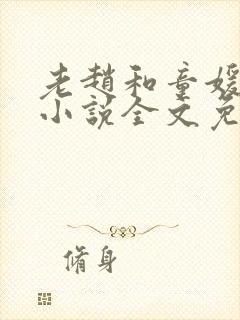 老趙和童媛
小說全文免
脩身